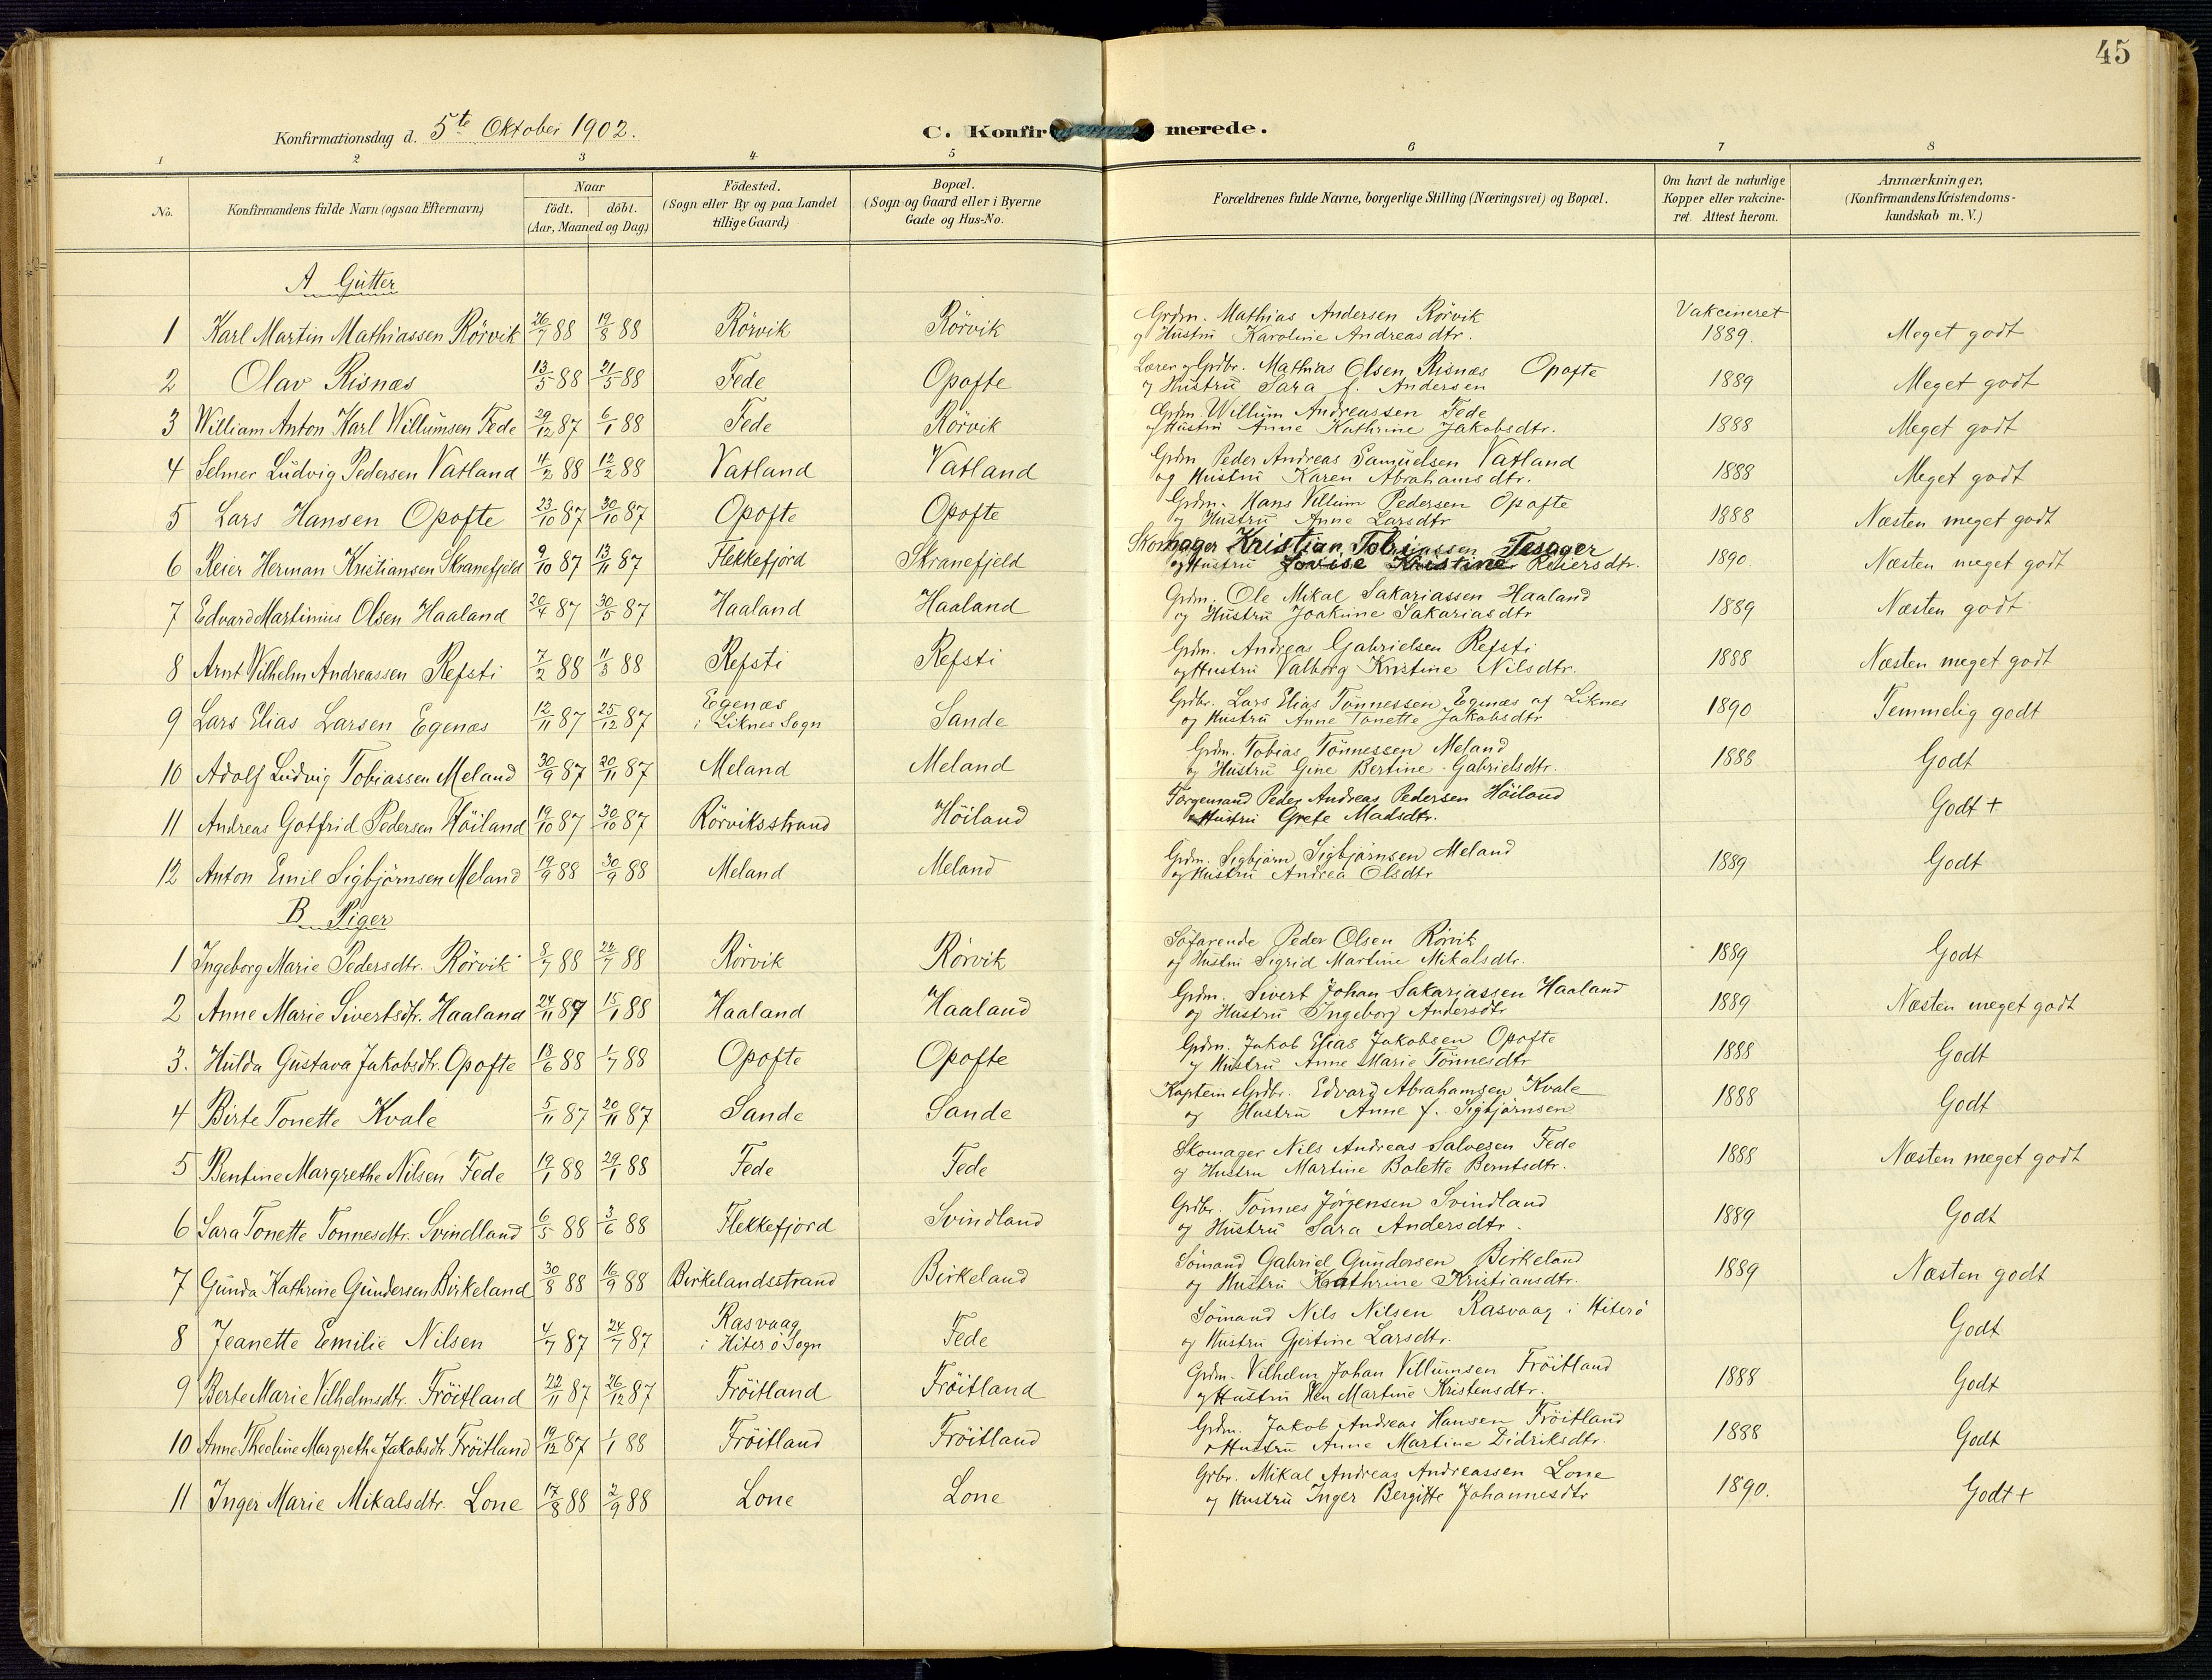 45
Konfirmationsdag d. 5te Oktober 1902.
C. Konfirmerede.
1 2 3 4 5 6 7 8
No. | Konfirmandens fulde Navn (ogsaa Efternavn) | Naar födt. döbt. (Aar, Maaned og Dag) | Födested. (Sogn eller By og paa Landet tillige Gaard) | Bopæl. (Sogn og Gaard eller i Byerne Gade og Hus-No. | Forældrenes fulde Navne, borgerlige Stilling (Næringsvei) og Bopæl. | Om havt de naturlige Kopper eller vakcineret. Attest herom. | Anmærkninger, (Konfirmandens Kristendomskundskab m. V.)
A Gutter
1 Karl Martin Mathiassen Rörvik 26/7 88 19/8 88 Rörvik Rörvik Grdm. Mathias Andersen Rörvik og Hustru Karoline Andreasdtr. Vakcineret 1889. Meget godt
2 Olav Risnæs 13/5 88 21/5 88 Fede Opofte Lærer og Grdbr. Mathias Olsen Risnæs Opofte og Hustru Sara f. Andersen 1889 Meget godt
3 William Anton Karl Willumsen Fede 29/12 87 6/1 88 Fede Rörvik Grdm. Willum Andreassen Fede og Hustru Anne Kathrine Jakobsdtr. 1888 Meget godt
4 Selmer Ludvig Pedersen Vatland 4/2 88 12/2 88 Vatland Vatland Grdm Peder Andreas Samuelsen Vatland og Hustru Karen Abrahamsdtr. 1888 Meget godt
5 Lars Hansen Opofte 23/10 87 30/10 87 Opofte Opofte Grdm. Hans Villum Pedersen Opofte og Hustru Anne Larsdtr 1888 Næsten meget godt
6 Reier Herman Kristiansen Skranefjeld 9/10 87 13/11 87 Flekkefjord Skranefjeld Skomager Kristian Tobiassen Tesager og Hustru Lovise Kristine Reiersdtr. 1890. Næsten meget godt
7 Edvard Martinius Olsen Haaland 20/4 87 30/5 87 Haaland Haaland Grdm. Ole Mikal Sakariassen Haaland og Hustru Joakime Sakariasdtr 1889 Næsten godt
8 Arnt Vilhelm Andreassen Refsti 7/2 88 11/3 88 Refsti Refsti Grdm. Andreas Gabrielsen Refsti og Hustru Valborg Kristine Nilsdtr. 1888 Næsten meget godt
9 Lars Elias Larsen Egenæs 12/11 87 25/12 87 Egenæs i Liknes Sogn Sande Grdbr. Lars Elias Tönnessen Egenæs af Liknes og Hustru Anne Tonette Jakobsdtr 1890 Temmelig godt
10 Adolf Ludvig Tobiassen Meland 30/9 87 20/11 87 Meland Meland Grdm. Tobias Tönnessen Meland og Hustru Gine Bertine Gabrielsdtr. 1888 Godt
11 Andreas Gotfrid Pedersen Höiland 19/10 87 30/10 87 Rörviksstrand Höiland Færgemand Peder Andreas Pedersen Höiland og Hustru Grete Madsdtr. Godt +
12 Anton Emil Sigbjörnsen Meland 19/9 88 30/9 88 Meland Meland Grdm. Sigbjörn Sigbjörnsen Meland og Hustru Andrea Olsdtr 1889 Godt
B Piger
1 Ingeborg Marie Pedersdtr. Rörvik 3/7 88 22/7 88 Rörvik Rörvik Söfarende Peder Olsen Rörvik og Hustru Sigrid Martine Mikalsdtr. 1889 Godt
2 Anne Marie Sivertsdtr. Haaland 24/11 87 15/1 88 Haaland Haaland Grdm. Sivert Johan Sakariassen Haaland og Hustru Ingeborg Andersdtr 1889 Næsten meget godt
3. Hulda Gustava Jakobsdtr. Opofte 18/6 88 1/7 88 Opofte Opofte Grdm. Jakob Elias Jakobsen Opofte og Hustru Anne Marie Tönnesdtr 1888 Godt
4 Birte Tonette Kvale 5/11 87 20/11 87 Sande Sande Kaptein & Grdbr. Edvard Abrahamsen Kvale og Hustru Anne f. Sigbjörnsen 1888 Godt
5 Bentine Margrethe Nilsen Fede 19/1 88 29/1 88 Fede Fede Skomager Nils Andreas Salvesen Fede og Hustru Martine Bolette Berntsdtr. 1888 Næsten meget godt
6 Sara Tonette Tonnesdtr. Svindland 6/5 88 3/6 88 Flekkefjord Svindland Grdbr. Tönnes Jörgensen Svindland og Hustru Sara Andersdtr. 1889 Godt
7 Gunda Kathrine Gundersen Birkeland 30/8 88 16/9 88 Birkelandsstrand Birkeland Sömand Gabriel Gundersen Birkeland og Hustru Kathrine Kristiansdtr. 1889 Næsten godt
8 Jeanette Emilie Nilsen 4/7 87 24/7 87 Rasvaag i Hiterö Sogn Fede Sömand Nils Nilsen Rasvaag i Hiterö og Hustru Gjertine Larsdtr. Godt
9 Berte Marie Vilhelmsdtr. Fröitland 22/11 87 26/12 87 Fröitland Fröitland Grdm. Vilhelm Johan Villumsen Fröitland og Hustru Martine Kristensdtr. 1888 Godt
10 Anne Theoline Margrethe Jakobsdtr Fröitland 19/12 87 1/1 88 Fröitland Fröitland Grdm. Jakob Andreas Hansen Fröitland og Hustru Anne Martine Didriksdtr. 1888 Godt
11 Inger Marie Mikalsdtr. Lone 17/8 88 2/9 88 Lone Lone Grbr. Mikal Andreas Andreassen Lone og Hustru Inger Bergitte Johannesdtr 1890. Godt +